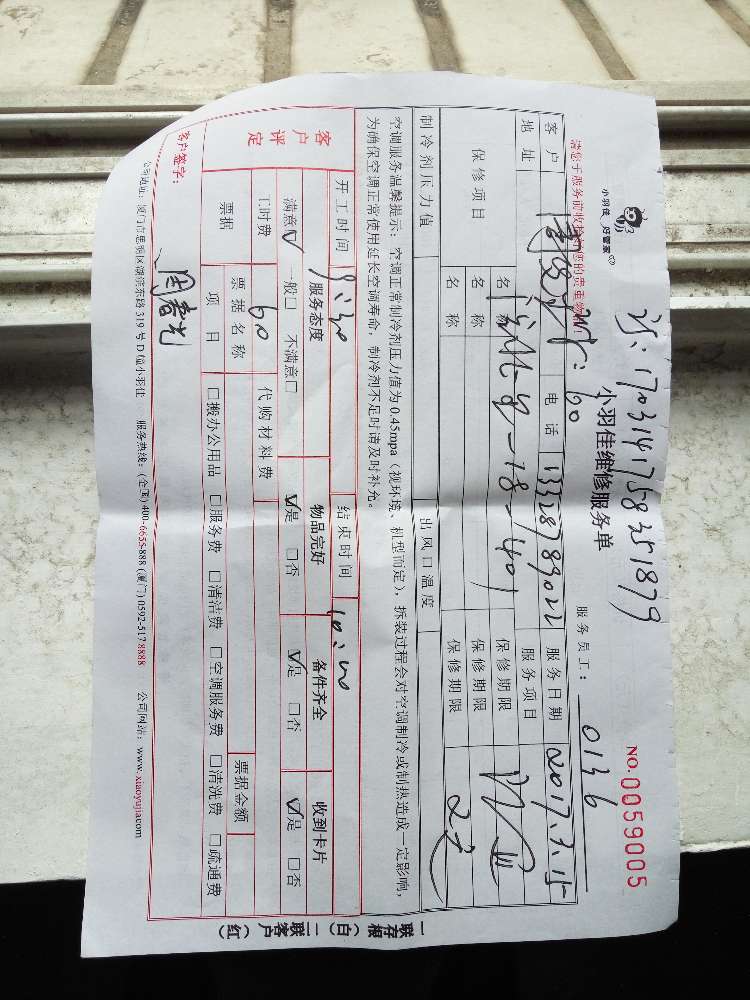 沂：1703141758351879
小羽佳 好管家
小羽佳维修服务单
NO.0059005
服务员工： 0136
请您于服务前收拾好您的贵重物品！
客户 电话 13328789022 服务日期 2017.3.15
地址 -9-18-401 服务项目
保修项目 名称 保修期限
名称 保修期限
名称 保修期限
制冷剂压力值 出风口温度
空调服务温馨提示：空调正常制冷剂压力值为0.45mpa（视环境、机型而定），拆装过程会对空调制冷或制热造成一定影响，
为确保空调正常使用延长空调寿命，制冷剂不足时请及时补充。
开工时间 9:30 结束时间 10:00
客户评定 服务态度 物品完好 备件齐全 收到卡片
满意☑ 一般□ 不满意□ ☑是 □否 ☑是 □否 ☑是 □否
工时费 60 代购材料费
票据 票据名称 票据金额
项目 □搬办公用品 □服务费 □清洁费 □空调服务费 □清洗费 □疏通费
客户签字：
公司地址：厦门市思明区湖滨东路319号D幢小羽佳 服务热线：(全国)400-6655-888 (厦门)0592-517 8888 公司网站：www.xiaoyujia.com
一联存根（白） 二联客户（红）